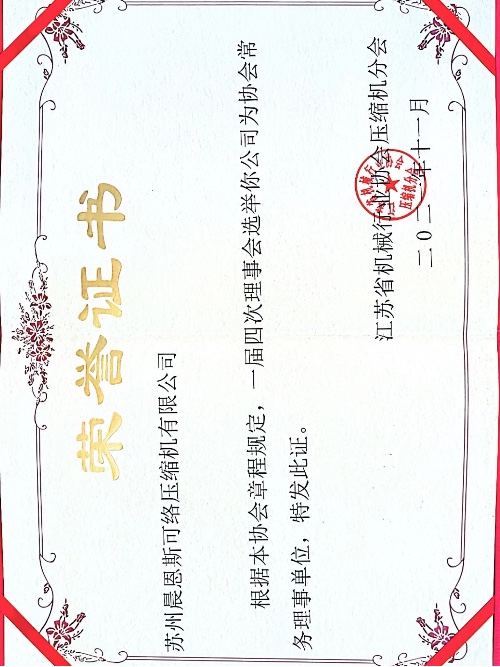 荣誉证书
苏州晨恩斯可络压缩机有限公司
根据本协会章程规定，一届四次理事会选举你公司为协会常
务理事单位，特发此证。
江苏省机械行业协会压缩机分会
二〇二 年十一月
压缩机分会